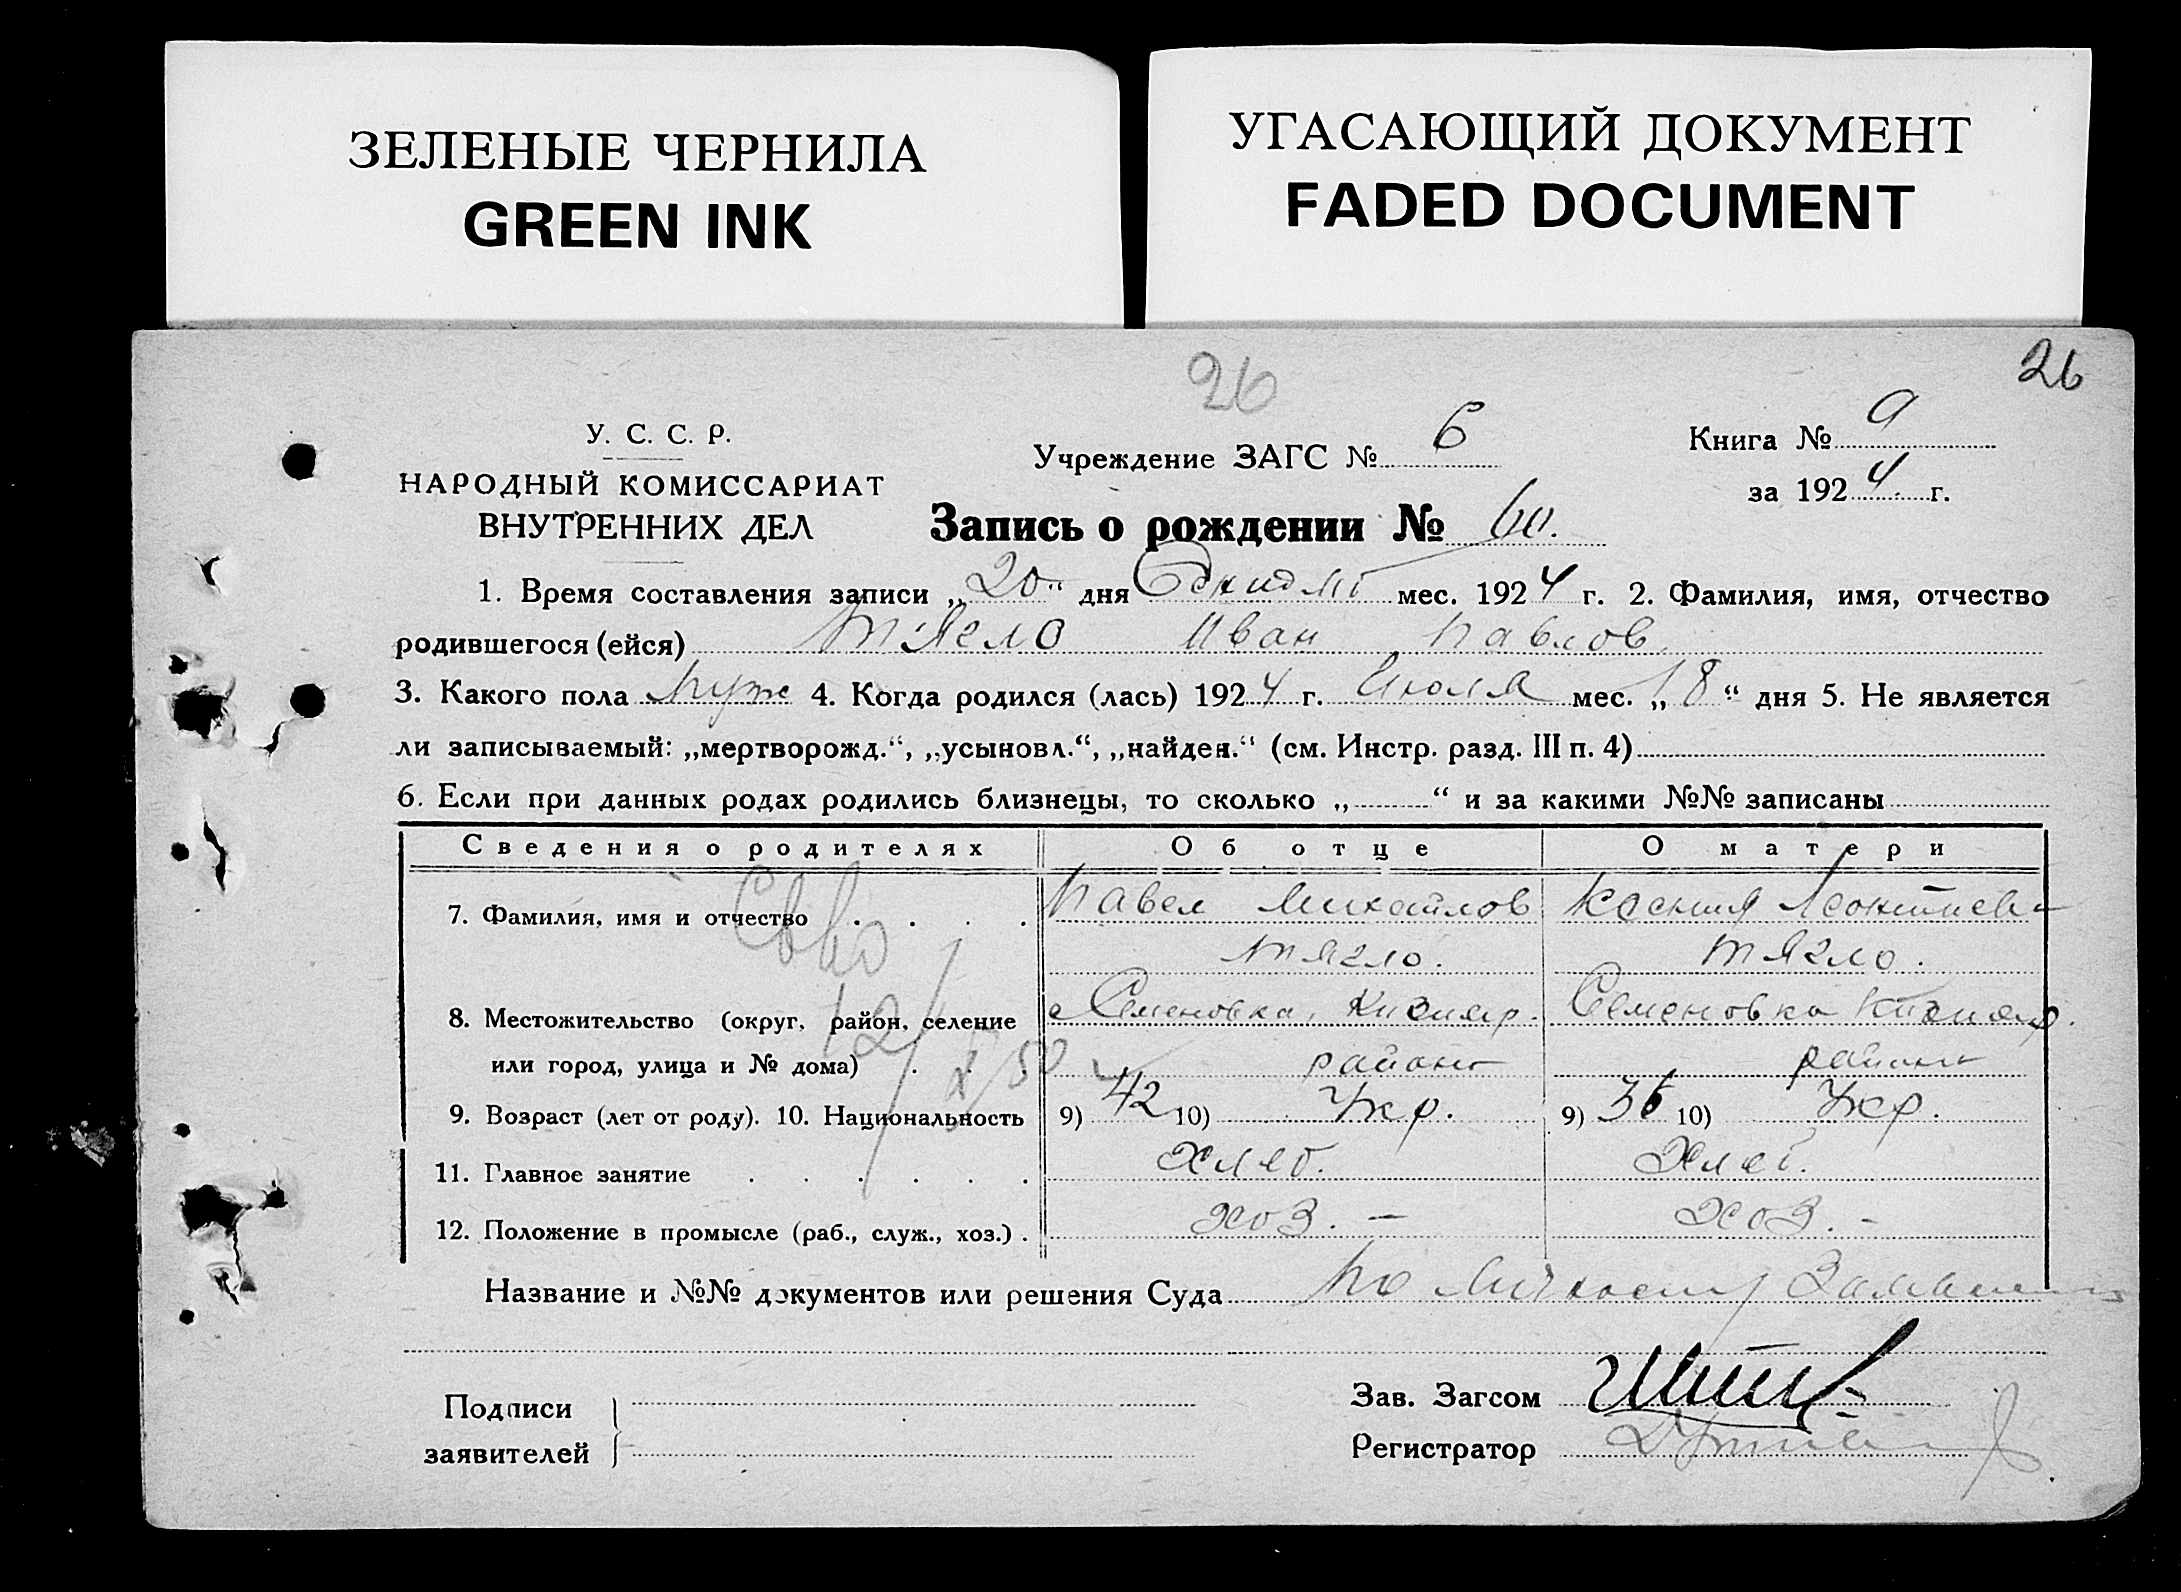 ЗЕЛЕНЫЕ ЧЕРНИЛА
GREEN INK
УГАСАЮЩИЙ ДОКУМЕНТ
FADED DOCUMENT
26
26
У. С. С. Р.
НАРОДНЫЙ КОМИССАРИАТ
ВНУТРЕННИХ ДЕЛ
Учреждение ЗАГС № 6
Книга № 9
за 1924 г.
Запись о рождении № 60.
1. Время составления записи „20“ дня мес. 1924 г. 2. Фамилия, имя, отчество
родившегося (ейся) Тягло Иван Павлов
3. Какого пола Муж 4. Когда родился (лась) 1924 г. Июля мес. „18“ дня 5. Не является
ли записываемый: „мертворожд.“, „усыновл.“, „найден.“ (см. Инстр. разд. III п. 4)
6. Если при данных родах родились близнецы, то сколько „ “ и за какими №№ записаны
Сведения о родителях Об отце О матери
7. Фамилия, имя и отчество Павел Михайлов Ксения Леонтиев
Тягло. Тягло.
8. Местожительство (округ, район, селение с Семеновка, Кизияр. Семеновка Кизияр.
или город, улица и № дома) района района
9. Возраст (лет от роду). 10. Национальность 9) 42 10) Укр. 9) 36 10) Укр.
11. Главное занятие Хлеб. Хлеб.
12. Положение в промысле (раб., служ., хоз.) хоз. — хоз. -
Название и №№ документов или решения Суда По
Подписи
заявителей
Зав. Загсом
Регистратор